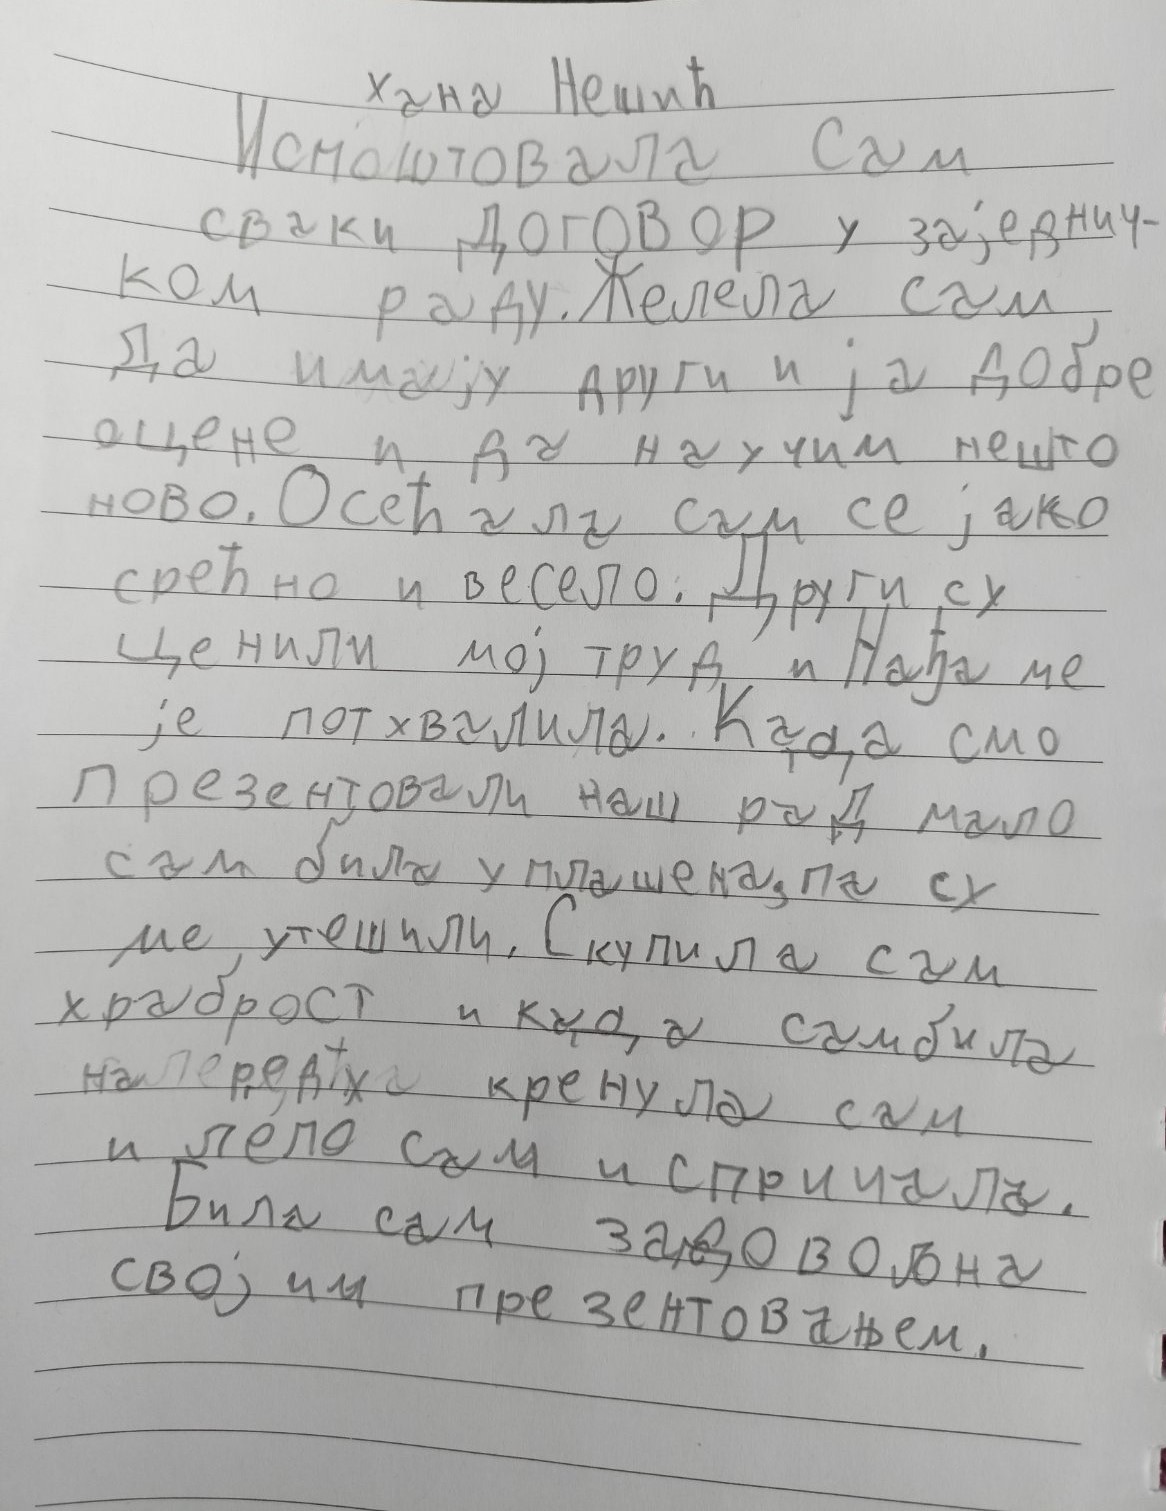 хана Нешић
Исмоштовала Сам
сваки договор у заједнич-
ком раду. Желела сам
да имају други и ја добре
оцене и да научим нешто
ново. Осећала сам се јако
срећно и весело. Други су
ценили мој труд и Нађа ме
је потхвалила. Када смо
презентовали наш рад мало
сам била уплашена, па су
ме утешили. Скупила сам
храброст и када сам била
на реду кренула сам
и лепо сам испричала.
Била сам задовољна
својим презентовањем.